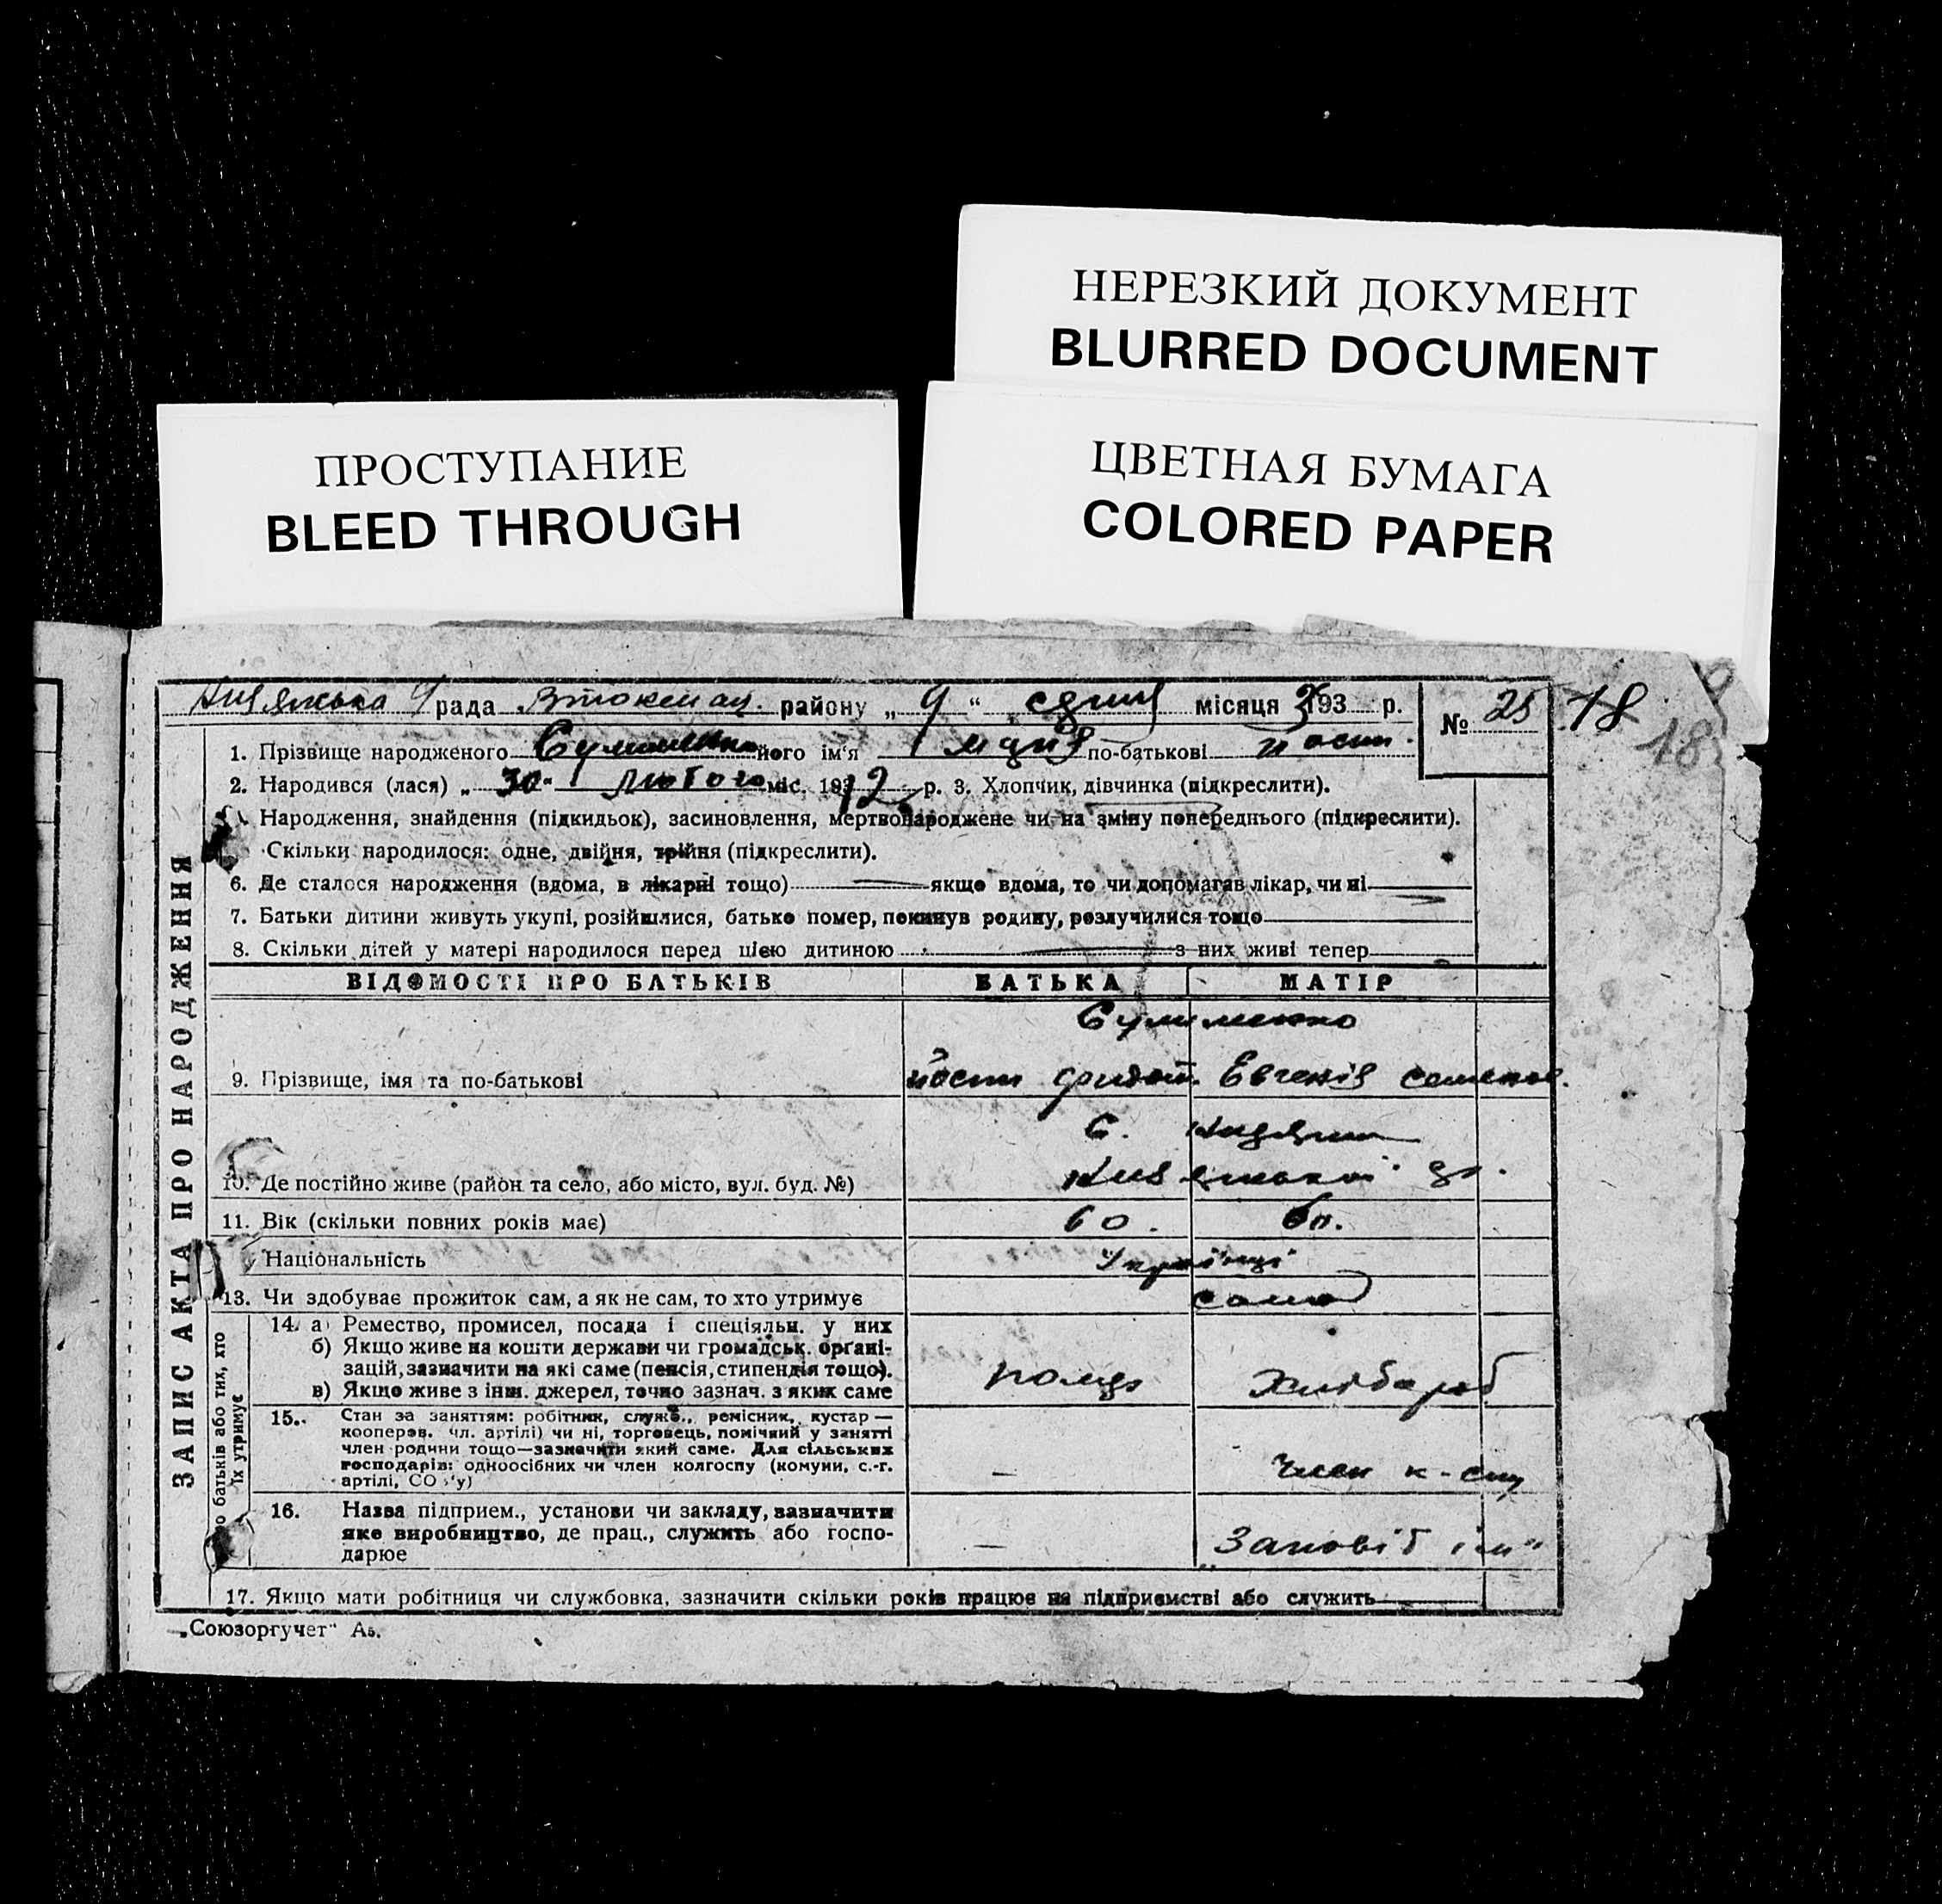 НЕРЕЗКИЙ ДОКУМЕНТ
BLURRED DOCUMENT
ПРОСТУПАНИЕ
BLEED THROUGH
ЦВЕТНАЯ БУМАГА
COLORED PAPER
рада району „ 9 “ місяця 193 р. № 25 18
18
1. Прізвище народженого його ім'я по-батькові
2. Народився (лася) „ 30 лютого міс. 1912 р. 3. Хлопчик, дівчинка (підкреслити).
Народження, знайдення (підкидьок), засиновлення, мертвонароджене чи на зміну попереднього (підкреслити).
Скільки народилося: одне, двійня, трійня (підкреслити).
6. Де сталося народження (вдома, в лікарні тощо) якщо вдома, то чи допомагав лікар, чи ні
7. Батьки дитини живуть укупі, розійшлися, батько помер, покинув родину, розлучилися тощо
8. Скільки дітей у матері народилося перед цією дитиною з них живі тепер
ЗАПИС АКТА ПРО НАРОДЖЕННЯ
ВІДОМОСТІ ПРО БАТЬКІВ БАТЬКА МАТІР
Сулименко
9. Прізвище, імя та по-батькові Евгенія семенов.
с.
10. Де постійно живе (район та село, або місто, вул. буд. №)
11. Вік (скільки повних років має) 60.
Національність Українці
13. Чи здобуває прожиток сам, а як не сам, то хто утримує сама
о батьків або тих, хто їх утримує
14. а) Ремество, промисел, посада і спеціяльн. у них
б) Якщо живе на кошти держави чи громадськ. орґані-
зацій, зазначити на які саме (пенсія, стипендія тощо).
в) Якщо живе з інш. джерел, точно зазнач. з яких саме помер хлібороб
15. Стан за заняттям: робітник, служб., ремісник, кустар —
кооперов. чл. артілі) чи ні, торговець, помічний у занятті
член родини тощо—зазначити який саме. Для сільських
господарів: одноосібних чи член колгоспу (комуни, с.-г.
артілі, СО у) — Член к-спу
16. Назва підприєм., установи чи закладу, зазначити
яке виробництво, де прац., служить або госпо-
дарюе — „Заповіт іл“
17. Якщо мати робітниця чи службовка, зазначити скільки років працює на підприємстві або служить
„Союзоргучет“ А5.